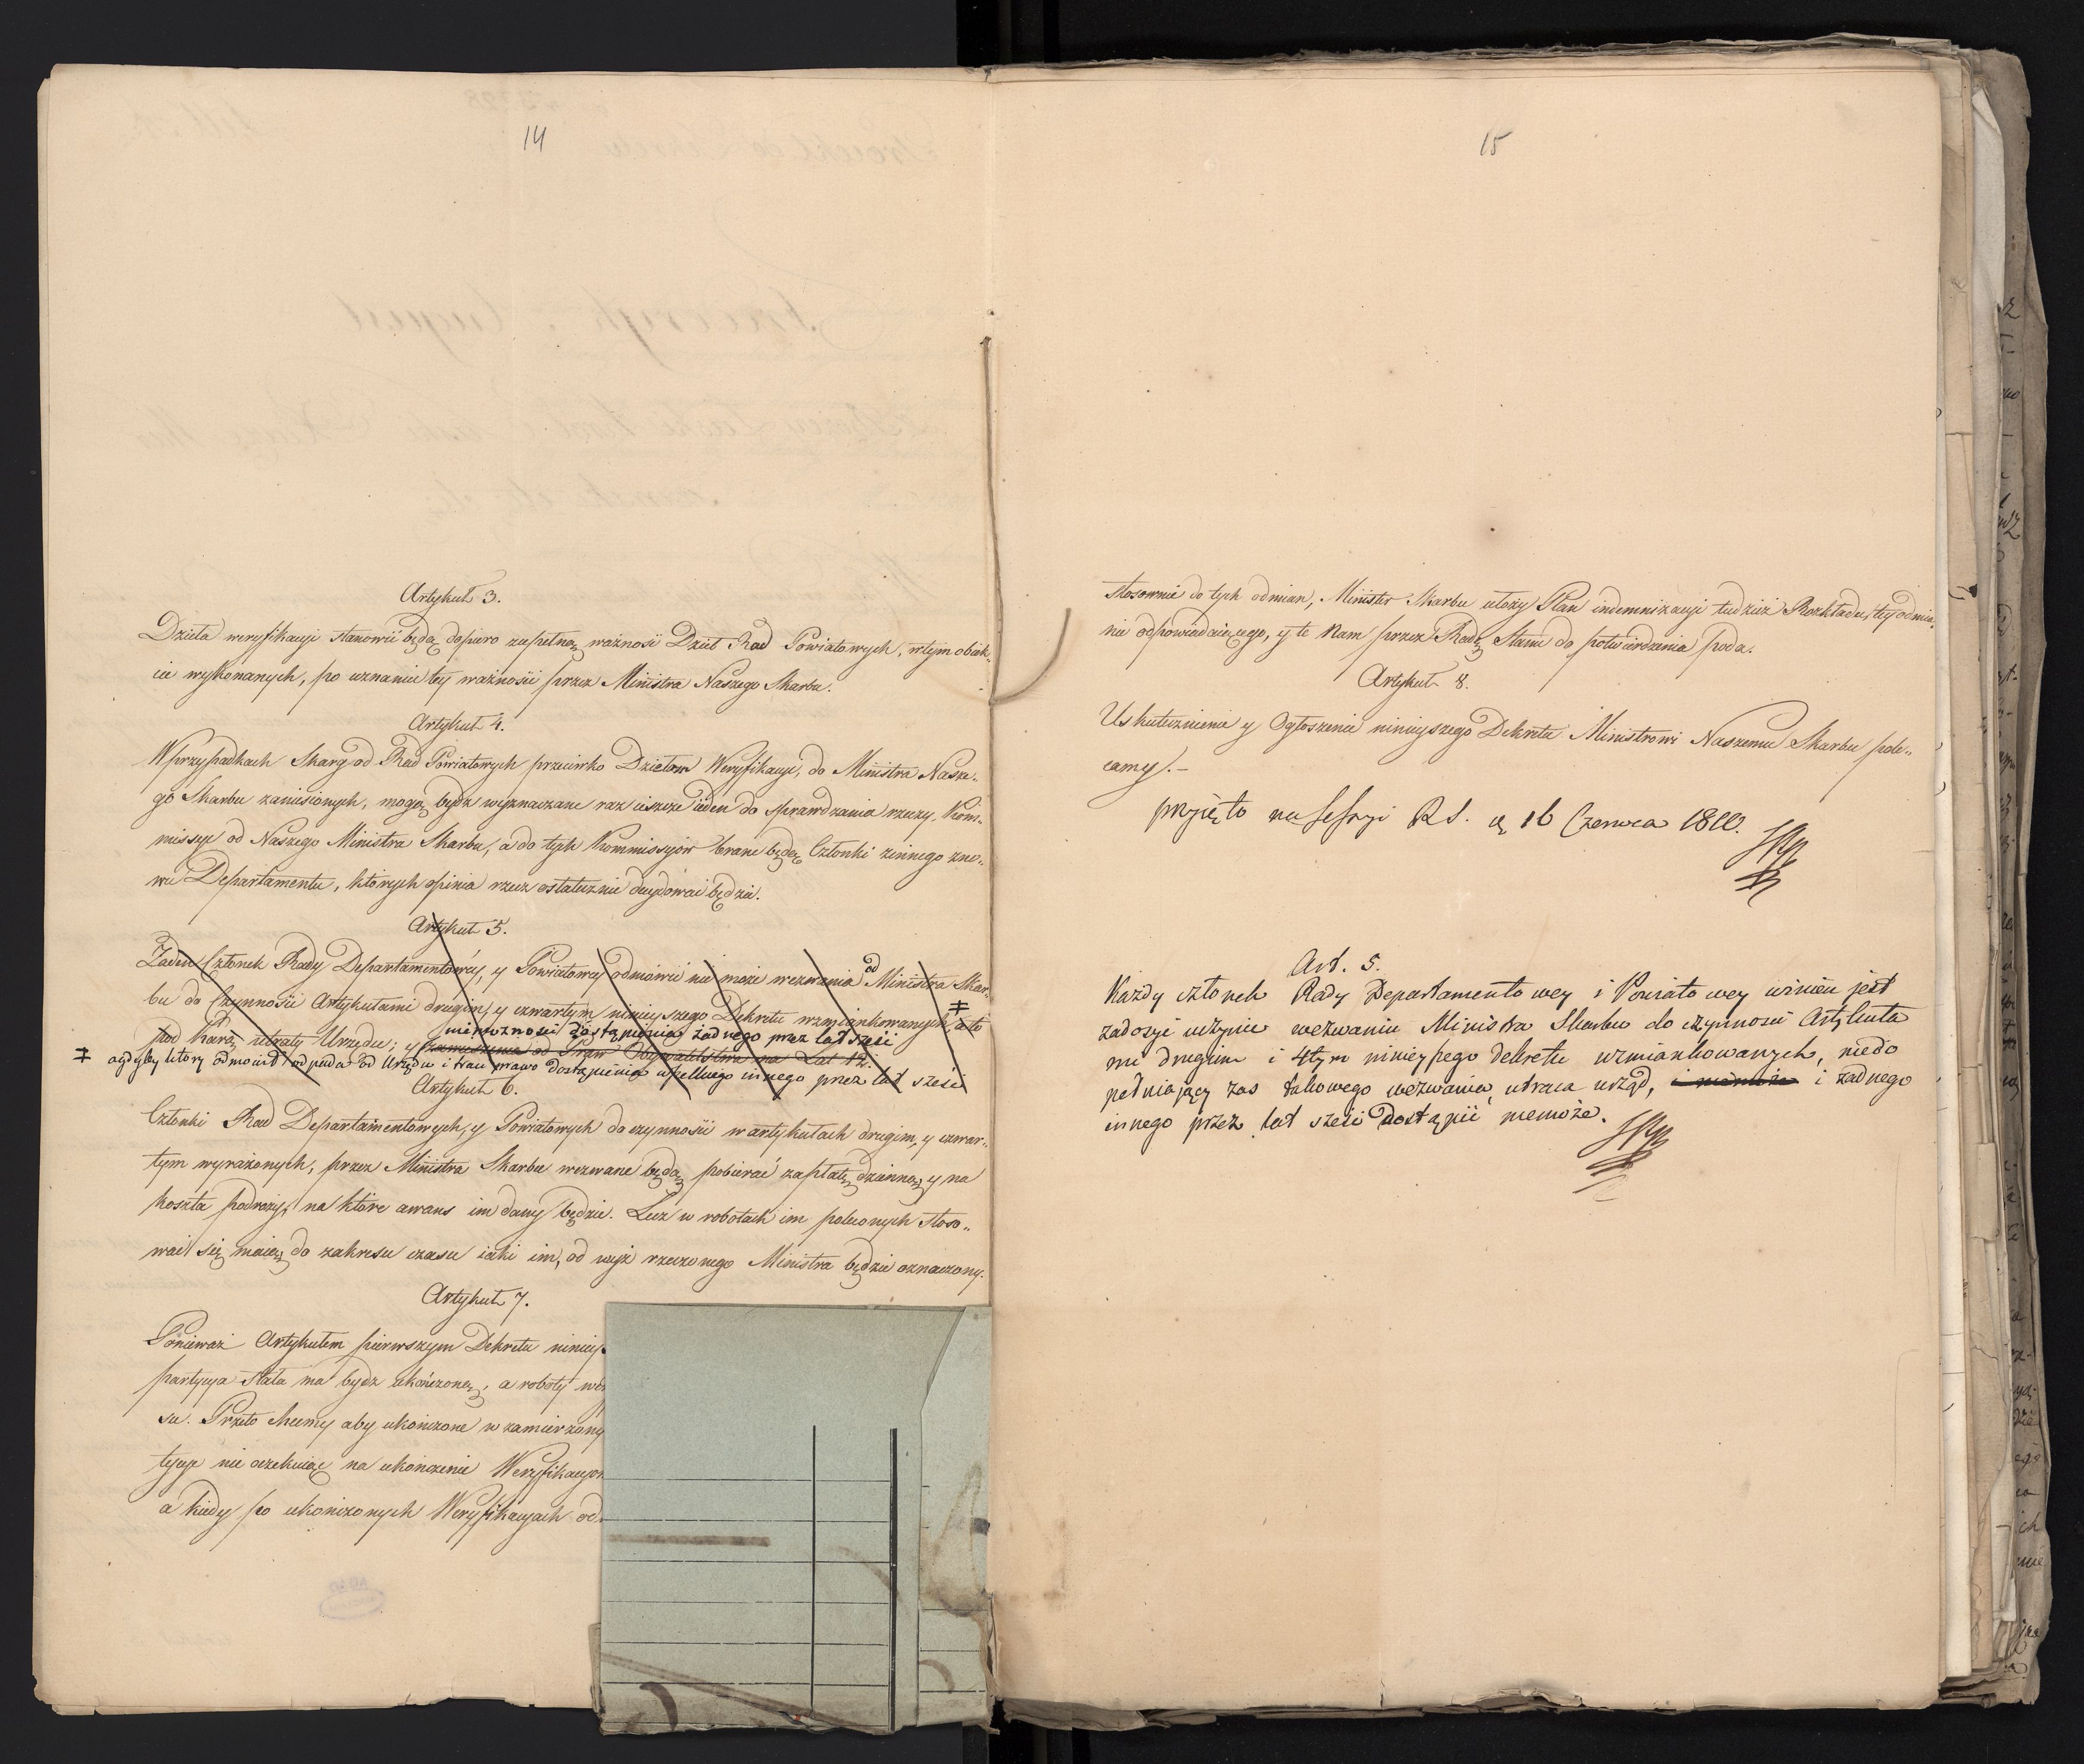 14
Artykuł 3.
Dzieła weryfikacyi stanowić będą dopiero zupełną ważność Dzieł Rad Powiatowych, w tym obiek-
cie wykonanych, po uznaniu tey ważności przez Ministra Naszego Skarbu.
Artykuł 4.
W przypadkach Skarg od Rad Powiatowych przeciwko Dziełom Weryfikacyi, do Ministra Nasze-
go Skarbu zaniesionych, mogą bydź wyznaczane raz ieszcze ieden do sprawdzania rzeczy, Kom-
missye od Naszego Ministra Skarbu, a do tych Kommissyów brane będą Członki z innego zno-
wu Departamentu, których opinia rzecz ostatecznie decydować będzie.
Artykuł 5.
Żaden Członek Rady Departamentowéy, y Powiatowey odmówić nie może wezwania od Ministra Skar-
bu do Czynności Artykułami drugim, y czwartym ninieyszego Dekretu wzmiankowanych ‡ a to
pod Karą utraty Urzędu; y zawieszenia od Praw Obywatelstwa na Lat 12.
niemożności dostąpienia żadnego przez lat sześć
‡ a gdyby który odmówił odpada od Urzędu i traci prawo dostąpienia wszelkiego innego przez lat sześć
Artykuł 6.
Członki Rad Departamentowych, y Powiatowych do czynności w artykułach drugim, y czwar-
tym wyrażonych, przez Ministra Skarbu wezwane będą pobierać zapłatę dzienną y na
koszta podróży, na które awans im dany będzie. Lecz w robotach im poleconych stoso-
wać się maią do zakresu czasu iaki im, od wyż rzeczonego Ministra będzie oznaczony.
Artykuł 7.
Ponieważ Artykułem pierwszym Dekretu niniey
partycya stała ma bydz ukończoną, a roboty
su. Przeto chcemy aby ukończone w zamierzony
tycye nie oczekuiąc na ukończenie Weryfikacyo
a kiedy po ukończonych Weryfikacyach od
15
stosownie do tych odmian, Minister Skarbu ułoży Plan indemnizacyi tudzież Rozkładu, tey odmia-
nie odpowiedaiącego, y te Nam przez Radę Stanu do potwierdzenia poda.
Artykuł 8.
Uskutecznienie y Ogłoszenie ninieyszego Dekretu Ministrowi Naszemu Skarbu pole-
camy.-
przyięto na Sessyi R S. d. 16 Czerwca 1810.
Art. 5.
Każdy członek Rady Departamentowey i Powiatowey winien jest
zadosyć uczynić wezwaniu Ministra Skarbu do czynności Artykuła
mi drugim i 4tym ninieyszego dekretu wzmiankowanych, niedo
pełniający zaś takowego wezwania, utraca urząd, i żadnego
innego przez lat sześć dostąpić niemoże.